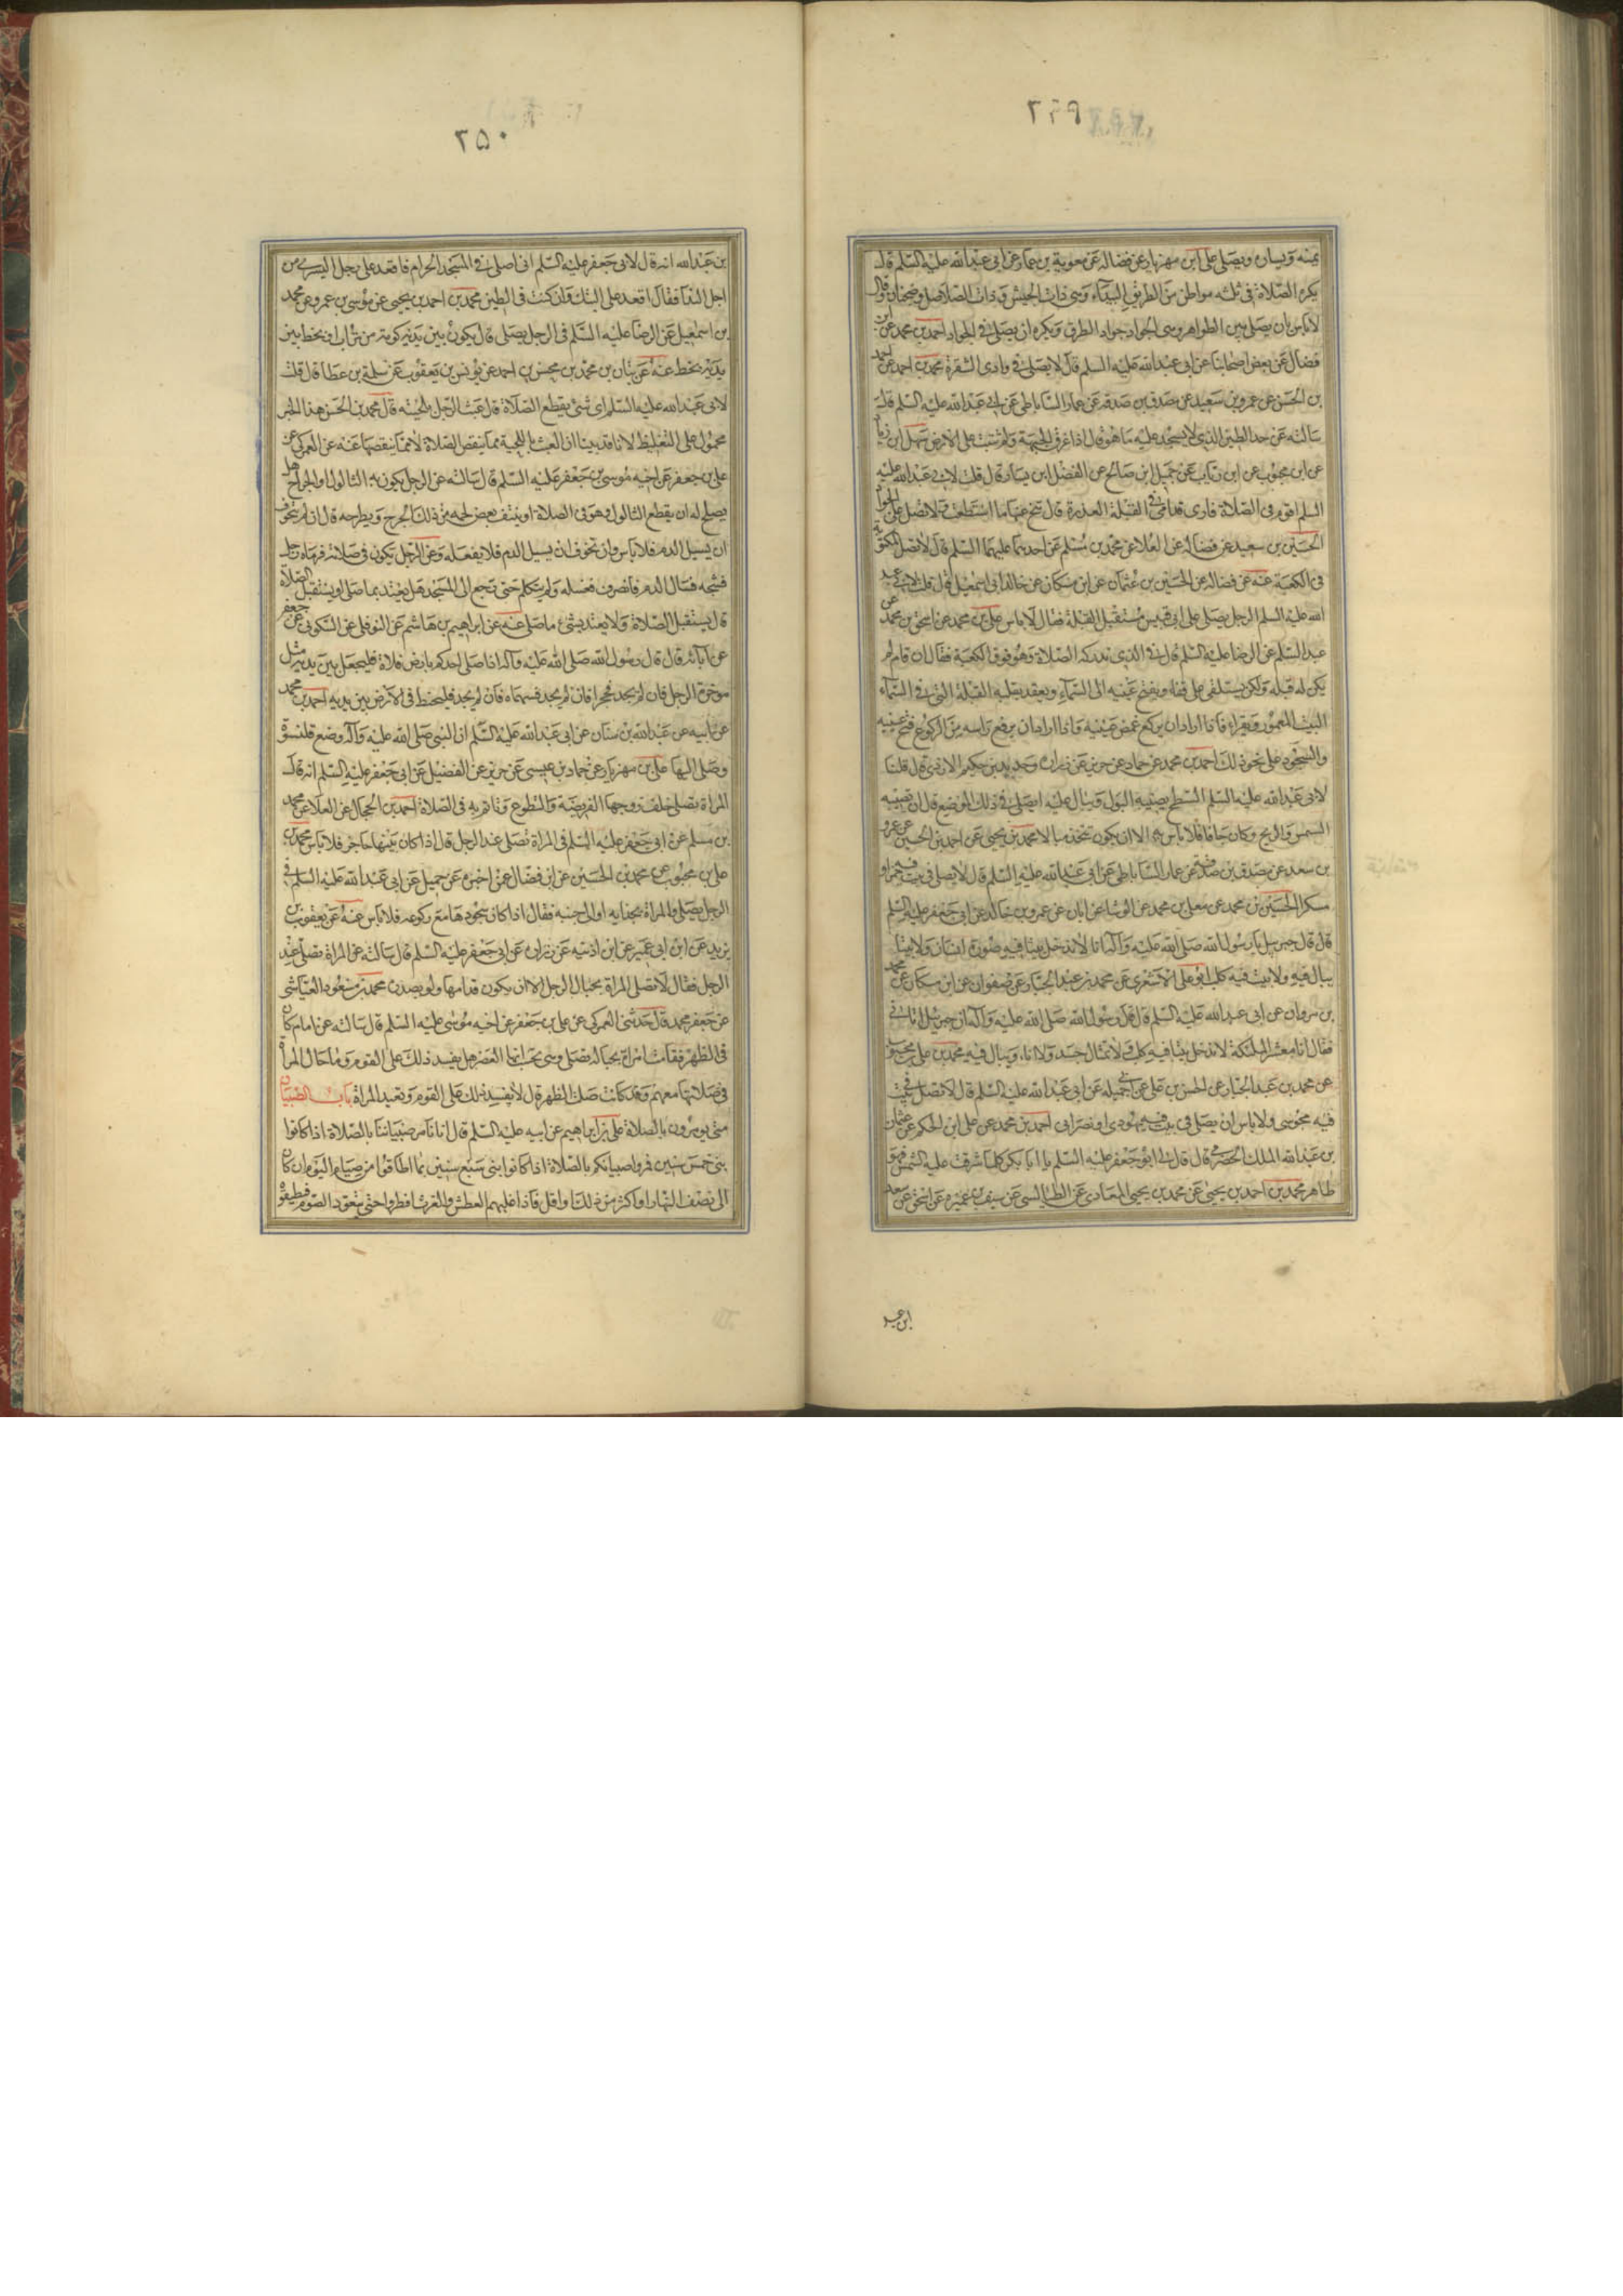 ٢٤٩
يمنة ويساره ويصلى على بن مهزيار عن فضاله عن معوية بن عمار عن ابى عبدالله عليه السلم قال
يكره الصلاة فى ثلثه مواطن من الطريق البيداء وهى ذات الجيش وذات الصلاصل وضجنان وقال
لا باس بان يصلى بين الظواهر وهى الجواد جواد الطرق ويكره ان يصلى فى الجواد احمد بن محمد عن ابن
فضال عن بعض اصحابنا عن ابى عبدالله عليه السلم قال لا يصلى فى وادى الشقرة محمد بن احمد عن احمد
بن الحسن عن عمرو بن سعيد عن مصدق بن صدقه عن عمار الساباطى عن ابى عبدالله عليه السلم قال
سالته عن حد الطين الذى لا يسجد عليه ما هو قال اذا غرق الجبهة ولم تثبت على الارض سهل ابن زياد
عن ابن محبوب عن ابن رياب عن جميل ابن صالح عن الفضل ابن يسار قال قلت لابى عبدالله عليه
السلم اقوم فى الصلاة فارى قدامى فى القبلة العذرة قال تنح عنها ما استطعت ولا تصل على الجواد
الحسين بن سعيد عن فضاله عن العلا عن محمد بن مسلم عن احدهما عليهما السلم قال لا تصل المكتوبة
فى الكعبة عنه عن فضاله عن الحسين بن عثمان عن ابن مسكان عن خالد ابى اسمعيل قال قلت لابى عبد
الله عليه السلم الرجل يصلى على ابى قبيس مستقبل القبلة فقال لا باس على بن محمد عن اسحق بن محمد عن
عبد السلم عن الرضا عليه السلم قال فى الذى تدركه الصلاة وهو فوق الكعبة فقال ان قام لم
يكن له قبلة ولكن يستلقى على قفاه ويفتح عينيه الى السماء ويعقد بقلبه القبلة التى فى السماء
البيت المعمور ويقراء فاذا اراد ان يركع غمض عينيه واذا اراد ان يرفع راسه من الركوع فتح عينيه
والسجود على نحو ذلك احمد بن محمد عن حماد عن حريز عن زراره وحديد بن حكيم الازدى قال قلنا
لابى عبدالله عليه السلم السطح يصيبه البول ويبال عليه ايصلى فى ذلك الموضع قال ان تصيبه
الشمس والريح وكان جافا فلا باس به الا ان يكون يتخذ مبالا محمد بن يحيى عن احمد بن الحسين عن عمرو
بن سعيد عن مصدق بن صدقة عن عمار الساباطى عن ابى عبدالله عليه السلم قال لا يصلى فى بيت فيه خمر او
مسكر الحسين بن محمد عن معلى بن محمد عن الوشا عن ابان عن عمرو بن خالد عن ابى جعفر عليه السلم
قال قال جبرئيل يا رسول الله صلى الله عليه وآله انا لا ندخل بيتا فيه صورة انسان ولا بيتا
يبال فيه ولا بيت فيه كلب ابو على الاشعرى عن محمد بن عبد الجبار عن صفوان عن ابن مسكان عن محمد
بن مروان عن ابى عبدالله عليه السلم قال قال رسول الله صلى الله عليه وآله ان جبرئيل اتانى
فقال انا معشر الملئكة لا ندخل بيتا فيه كلب ولا تمثال جسد ولا اناء ويبال فيه محمد بن على بن محبوب
عن محمد بن عبد الجبار عن الحسن بن على عن ابى جميله عن ابى عبدالله عليه السلم قال لا تصل فى بيت
فيه مجوسى ولا باس ان يصلى فى بيت فيه يهودى او نصرانى احمد بن محمد عن على ابن الحكم عن عثمان
بن عبدالله الملك الحضرمى قال قال لى ابو جعفر عليه السلم يا ابا بكر كلما اشرقت عليه الشمس فهو
طاهر محمد بن احمد بن يحيى عن محمد بن يحيى المعاذى عن الطيالسى عن سيف بن عميره عن اسحق عن سعد
ابن عبد
٢٥٠
بن عبدالله انه قال لابى جعفر عليه السلم انى اصلى فى المسجد الحرام فاقعد على رجل اليسرى من
اجل الندا فقال اقعد على اليتك وان كنت فى الطين محمد بن احمد بن يحيى عن موسى بن عمرو عن محمد
بن اسمعيل عن الرضا عليه السلم فى الرجل يصلى قال يكون بين يديه كومة من تراب او يخط بين
يديه بخط عنه عن بنان بن محمد بن محسن بن احمد عن يونس بن يعقوب عن سلمة بن عطا قال قلت
لابى عبدالله عليه السلم اى شئ يقطع الصلاة قال عبث الرجل بلحيته قال محمد بن الحسن هذا الخبر
محمول على التغليظ لانا قد بينا ان العبث باللحية مما ينقص الصلاة لا مما ينقضها عنه عن العمركى عن
على بن جعفر عن اخيه موسى بن جعفر عليه السلم قال سالته عن الرجل يكون به الثالول او الجراح هل
يصلح له ان يقطع الثالول وهو فى الصلاة او ينتف بعض لحمه من ذلك الجرح ويطرحه قال ان لم يتخوف
ان يسيل الدم فلا باس وان تخوف ان يسيل الدم فلا يفعله وعن الرجل يكون فى صلاته فرماه رجل
فشجه فسال الدم فانصرف فغسله ولم يتكلم حتى رجع الى المسجد هل يعتد بما صلى او يستقبل الصلاة
قال يستقبل الصلاة ولا يعتد بشئ مما صلى عنه عن ابراهيم بن هاشم عن النوفلى عن السكونى عن جعفر
عن آبائه قال قال رسول الله صلى الله عليه وآله اذا صلى احدكم بارض فلاة فليجعل بين يديه مثل
موخرة الرجل فان لم يجد فحجرا فان لم يجد فسهما فان لم يجد فليخط فى الارض بين يديه احمد بن محمد
عن ابيه عن عبدالله بن سنان عن ابى عبدالله عليه السلم ان النبى صلى الله عليه وآله وضع قلنسوة
وصلى اليها على بن مهزيار عن حماد بن عيسى عن حريز عن الفضيل عن ابى جعفر عليه السلم انه قال
المراة تصلى خلف زوجها الفريضة والتطوع وتاتم به فى الصلاة احمد بن الحجال عن العلا عن محمد
بن مسلم عن ابى جعفر عليه السلم فى المراة تصلى عند الرجل قال اذا كان بينهما حاجز فلا باس محمد بن
على بن محبوب عن محمد بن الحسين عن ابن فضال عمن اخبره عن جميل عن ابى عبدالله عليه السلم فى
الرجل يصلى والمراة بحذايه او الى جنبه فقال اذا كان سجودها مع ركوعه فلا باس عنه عن يعقوب بن
يزيد عن ابن ابى عمير عن ابن اذينه عن زراره عن ابى جعفر عليه السلم قال سالته عن المراة تصلى عند
الرجل فقال لا تصلى المراة بحيال الرجل الا ان يكون قدامها ولو بصدره محمد بن مسعود العياشى
عن جعفر محمد قال حدثنى العمركى عن على بن جعفر عن اخيه موسى عليه السلم قال سالته عن امام كان
فى الظهر فقامت امراة بحياله تصلى وهى تحسب انها العصر هل يفسد ذلك على القوم وما حال المراة
فى صلاتها معهم وقد كانت صلت الظهر قال لا يفسد ذلك على القوم وتعيد المراة باب الصبيان
متى يومرون بالصلاة على بن ابراهيم عن ابيه عليه السلم قال انا نامر صبياننا بالصلاة اذا كانوا
بنى خمس سنين فمروا صبيانكم بالصلاة اذا كانوا بنى سبع سنين بما اطاقوا من صيام اليوم ان كان
الى نصف النهار او اكثر من ذلك او اقل فاذا غلبهم العطش والغرث افطروا حتى يتعود الصوم فيطيقوه